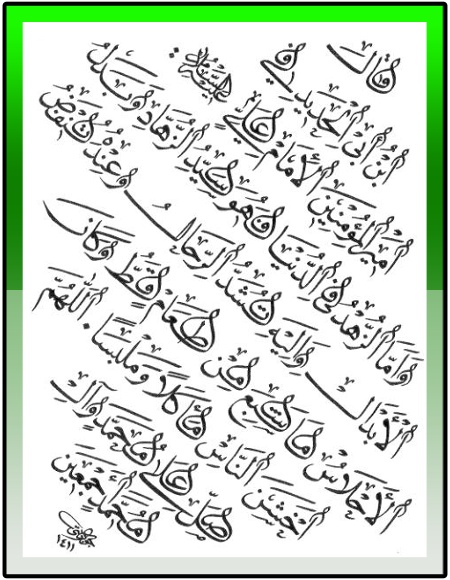 وقال
ابن ابي الحديد في
أمير المؤمنين الإمام علي عليه السلام.
وأما الزهد في الدنيا فهو سيد الزهاد وبدل
الأبدال وإليه تشد الرحال وعنده تنفض
الأحلاس ما شبع من طعام قط وكان
أخشن الناس مأكلا وملبسا. اللهم
صل على محمد وآل
محمد أجمعين
١٤١١